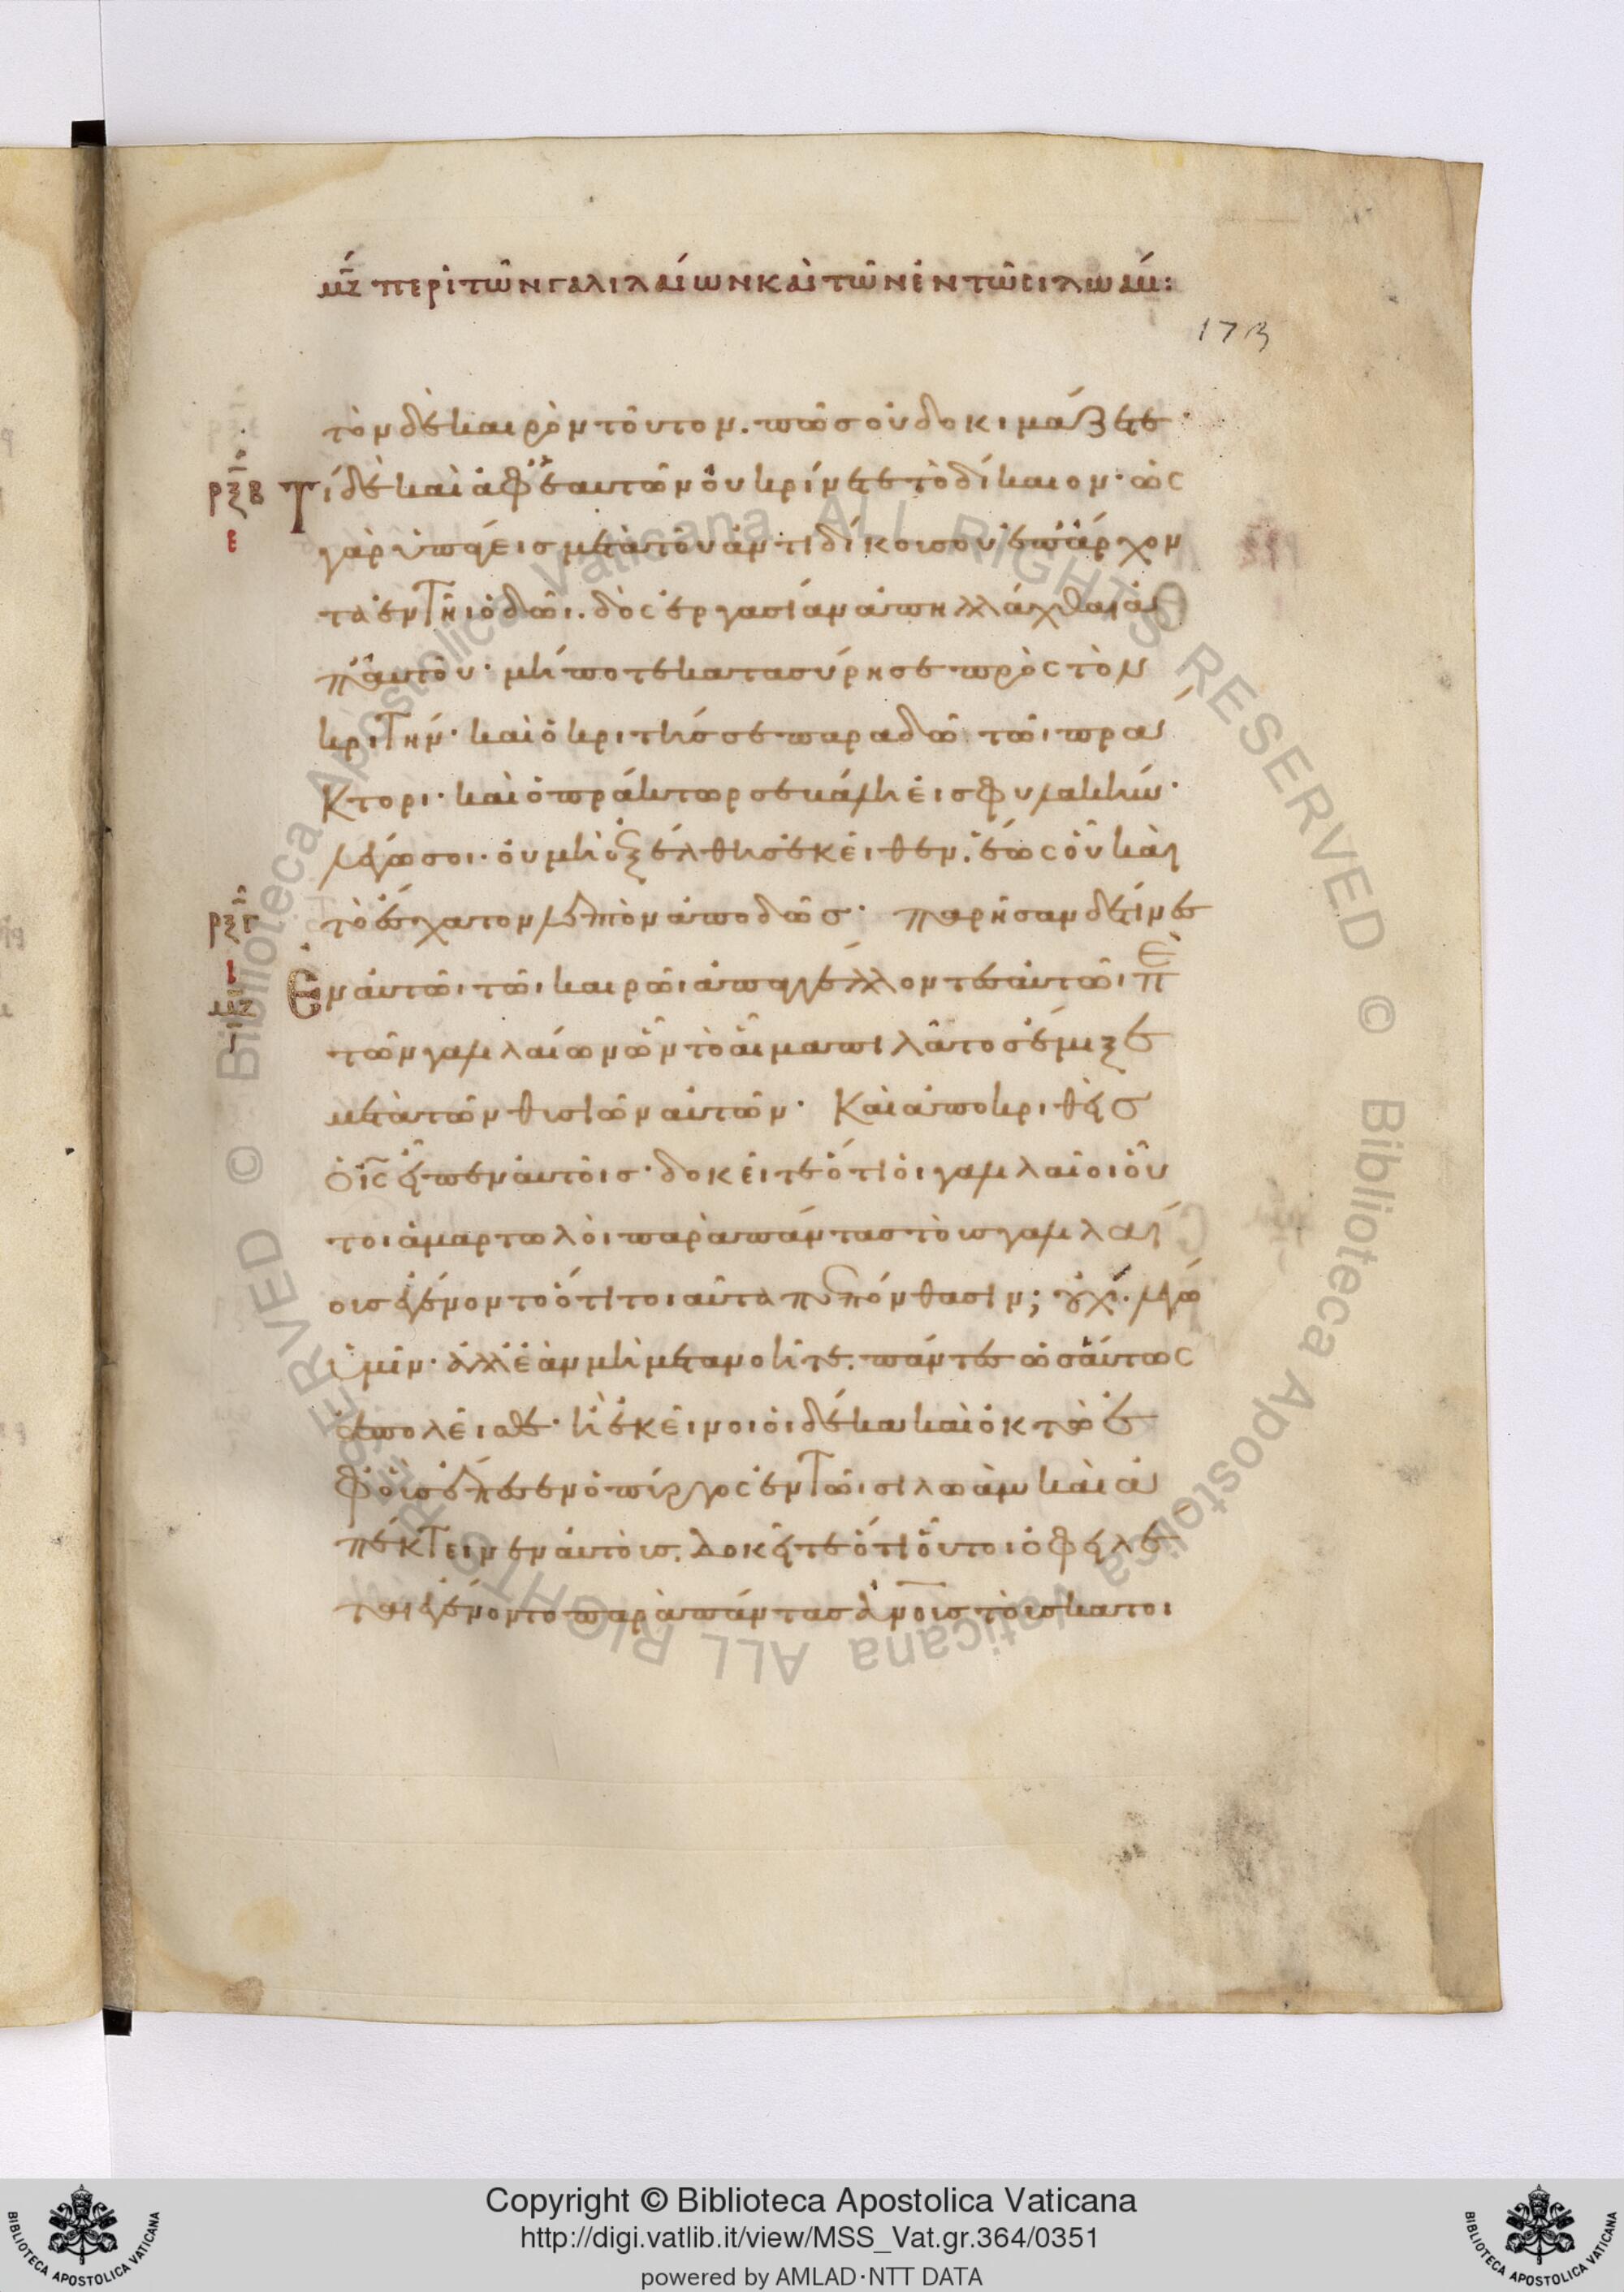 μζ περὶ τῶν γαλιλαίων καὶ τῶν ἐν τῶ σιλωάμ:
173
τὸν δὲ καιρὸν τοῦτον. πῶς οὐ δοκιμάζετε·
ρξβ Τί δὲ καὶ ἀφ' ἑαυτῶν οὐ κρίνετε τὸ δίκαιον· ὡς
ε γὰρ ὑπάγεις μετὰ τοῦ ἀντιδίκου σου ἐπ' ἄρχον
τα ἐν τῆι ὁδῶι. δὸς ἐργασίαν ἀπηλλάχθαι ἀ
π' αὐτοῦ· μήποτε κατασύρη σε πρὸς τὸν
κριτήν· καὶ ὁ κριτής σε παραδῶ τῶι πρά
κτορι· καὶ ὁ πράκτωρ σε βάλη εἰς φυλακήν·
λέγω σοι· οὐ μὴ ἐξέλθης ἐκεῖθεν. ἕως οὗ καὶ
ρξγ τὸ ἔσχατον λεπτὸν ἀποδῶς· παρῆσαν δέ τινες
ι
μζ Ἐν αὐτῶι τῶι καιρῶι ἀπαγγέλλοντες αὐτῶι πε
τῶν γαλιλαίων ὧν τὸ αἷμα πιλᾶτος ἔμιξε
μετὰ τῶν θυσιῶν αὐτῶν· Καὶ ἀποκριθεὶς
ὁ ις εἶπεν αὐτοῖς· δοκεῖτε ὅτι οἱ γαλιλαῖοι οὗ
τοι ἁμαρτωλοὶ παρὰ πάντας τοὺς γαλιλαί
ους ἐγένοντο ὅτι τοιαῦτα πεπόνθασιν; οὐχί. λέγω
ὑμῖν· ἀλλ' ἐὰν μὴ μετανοῆτε. πάντες ὡσαύτως
ἀπολεῖσθε· ἢ ἐκεῖνοι οἱ δέκα καὶ ὀκτὼ ἐ
φ' οὓς ἔπεσεν ὁ πύργος ἐν τῶι σιλωὰμ καὶ ἀ
πέκτεινεν αὐτούς. δοκεῖτε ὅτι οὗτοι ὀφειλέ
ται ἐγένοντο παρὰ πάντας ανους τοὺς κατοι
Copyright © Biblioteca Apostolica Vaticana
http://digi.vatlib.it/view/MSS_Vat.gr.364/0351
powered by AMLAD·NTT DATA
BIBLIOTECA APOSTOLICA VATICANA
BIBLIOTECA APOSTOLICA VATICANA
© Biblioteca Apostolica Vaticana ALL RIGHTS RESERVED
© Biblioteca Apostolica Vaticana ALL RIGHTS RESERVED